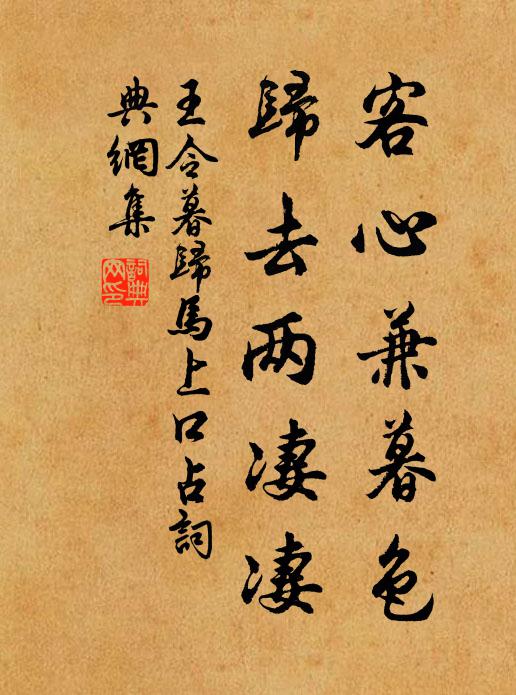 客心兼暮色
歸去两凄凄
王令暮歸馬上口占詞
典網集
詞典
网印